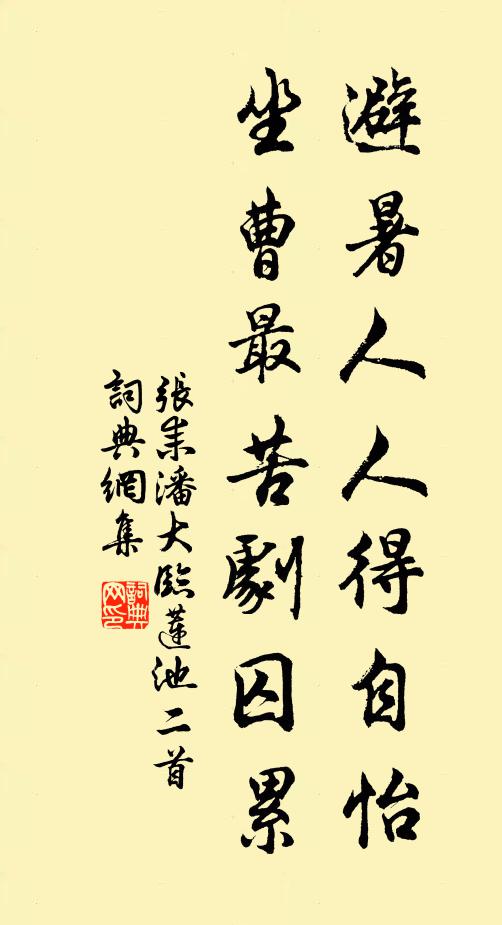 避暑人人得自怡
坐曹最苦劇囚累
張耒潘大臨蓮池二首
詞典網集
詞典